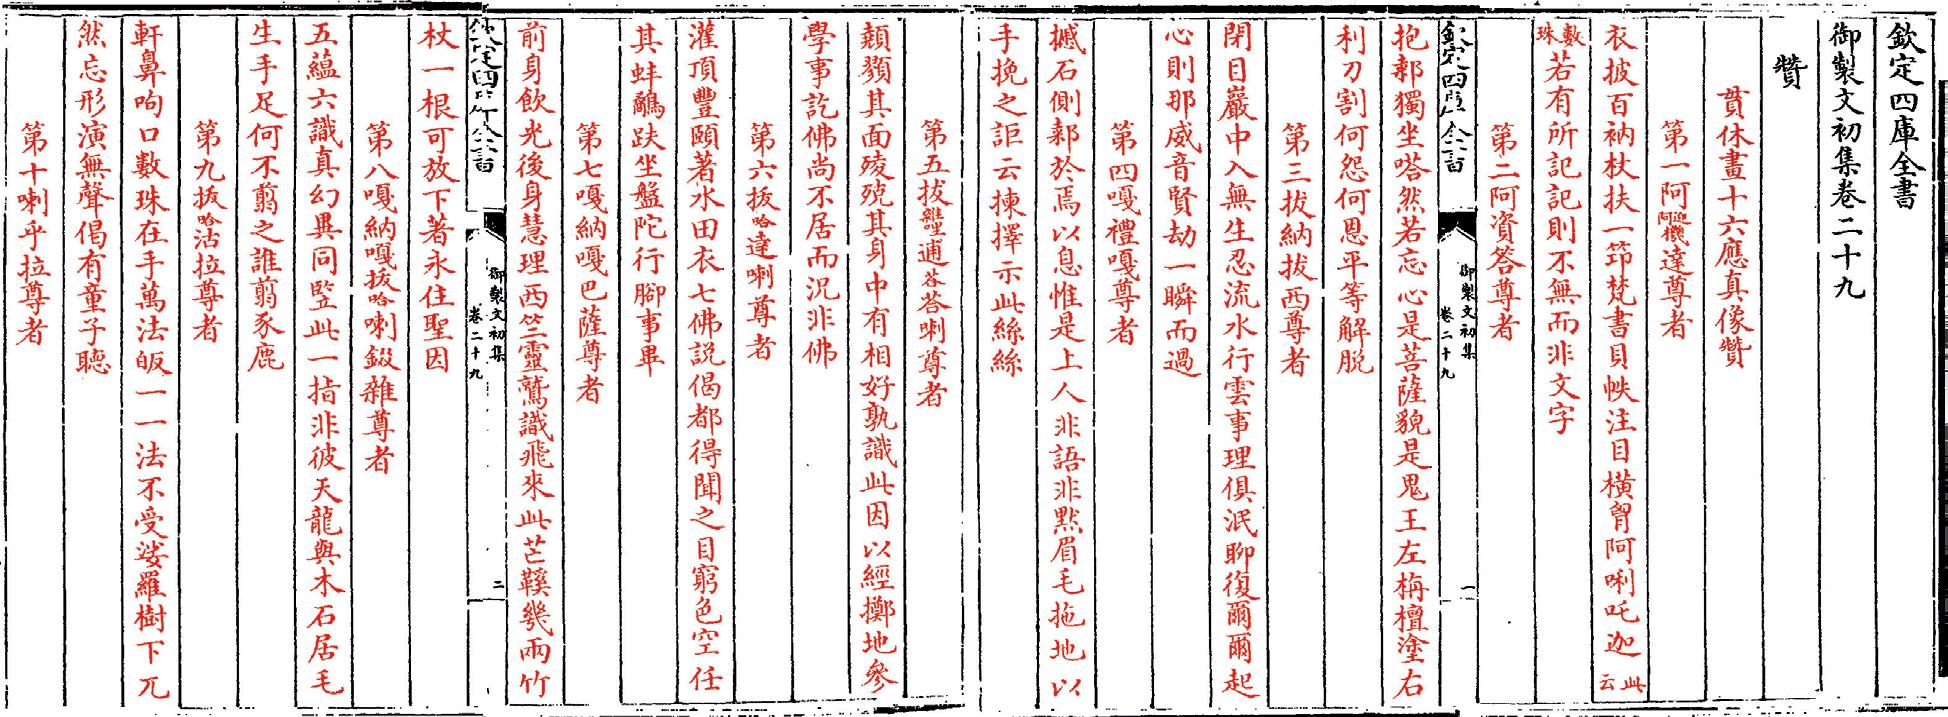 欽定四庫全書
御製文初集卷二十九
贊
貫休畫十六應真像贊
第一阿迎阿機達尊者
衣披百衲杖扶一笻梵書貝帙注目橫胷阿唎吒迦此云
數珠若有所記記則不無而非文字
第二阿資答尊者
抱膝獨坐嗒然若忘心是菩薩貌是鬼王左栴檀塗右
欽定四庫全書
御製文初集
卷二十九
一
利刀割何怨何恩平等解脱
第三拔納拔西尊者
閉目巖中入無生忍流水行雲事理俱泯聊復爾爾起
心則那威音賢劫一瞬而過
第四嘎禮嘎尊者
撼石側郄於焉以息惟是上人非語非黙眉毛拖地以
手挽之詎云揀擇示此絲絲
第五拔雜哩逋荅喇尊者
顡顟其面䧺𣨛其身中有相好孰識此因以經擲地參
學事訖佛尚不居而況非佛
第六拔哈達喇尊者
灌頂豐頤著水田衣七佛説偈都得聞之目窮色空任
其蚌鷸趺坐盤陀行腳事畢
第七嘎納嘎巴薩尊者
前身飲光後身慧理西竺靈鷲識飛來此芒鞵幾兩竹
欽定四庫全書
御製文初集
卷二十九
二
杖一根可放下著永住聖因
第八嘎納嘎拔哈喇錣雜尊者
五蘊六識真幻異同竪此一指非彼天龍與木石居毛
生手足何不翦之誰翦豕鹿
第九拔哈沽拉尊者
軒鼻呴口數珠在手萬法皈一一法不受娑羅樹下兀
然忘形演無聲偈有童子聽
第十喇乎拉尊者